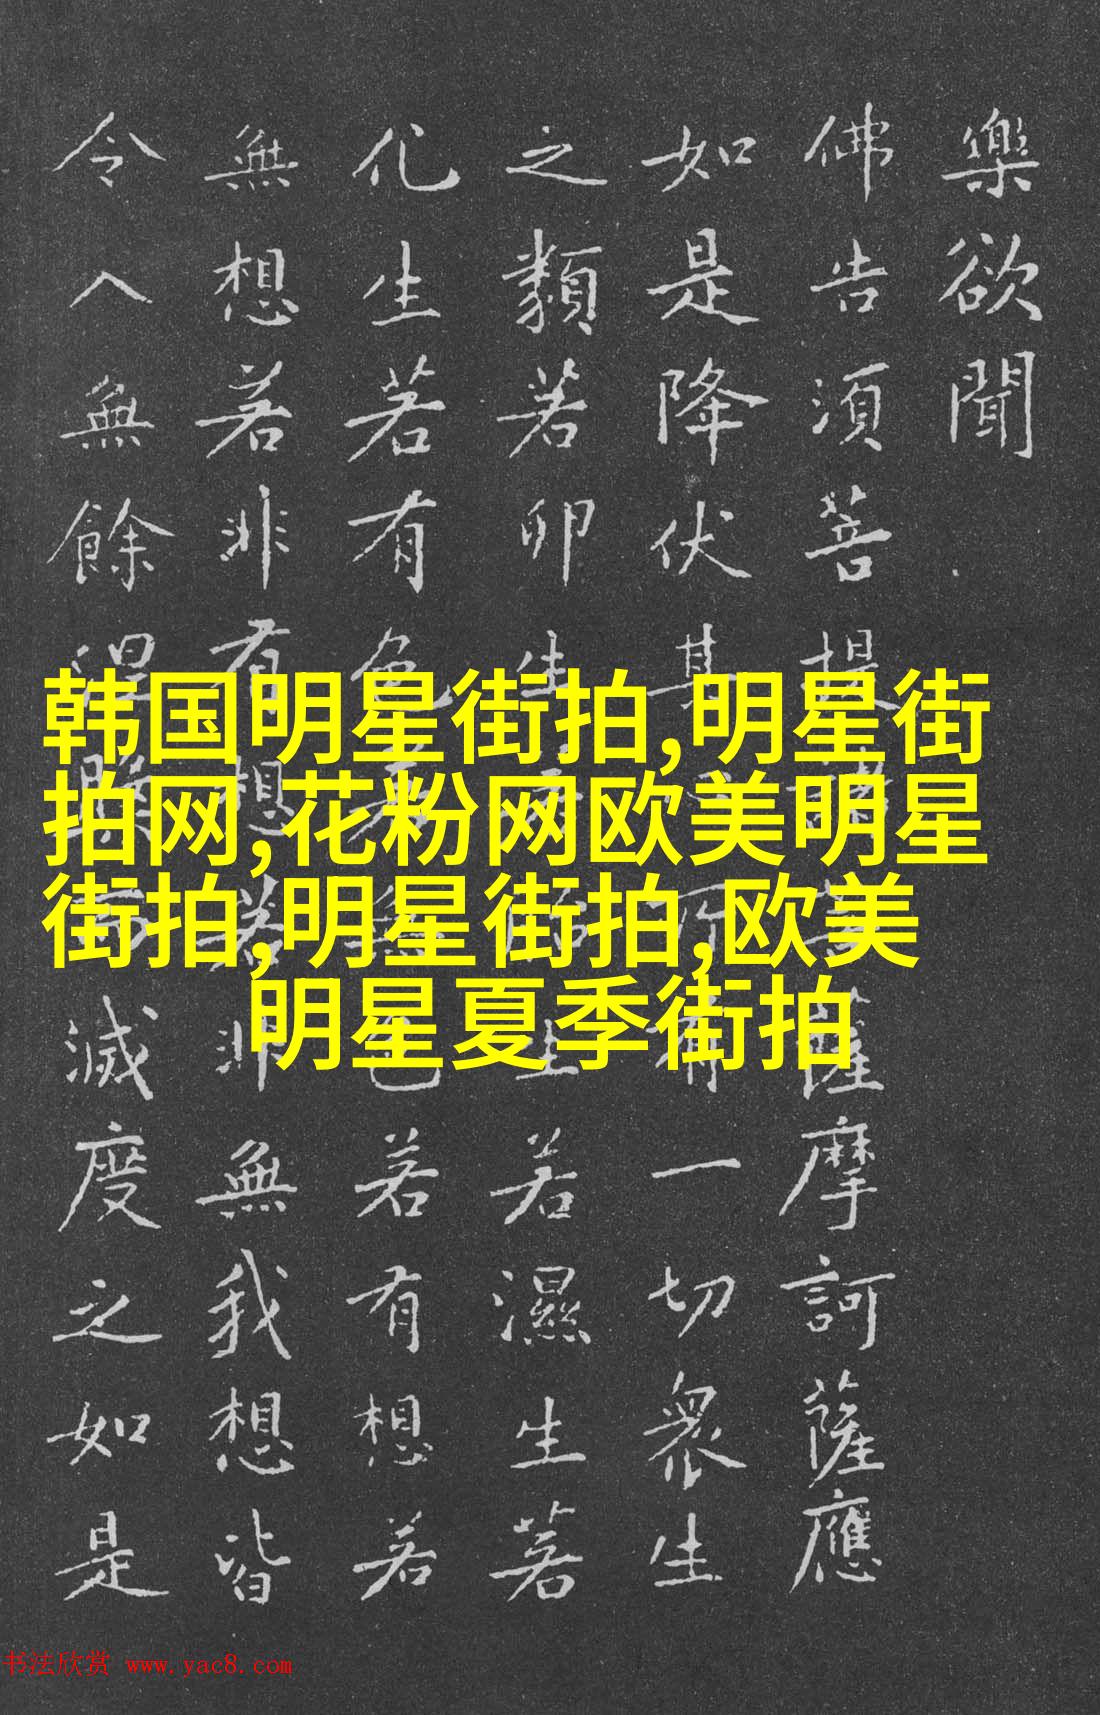 樂欲聞
佛告須菩提諸菩薩摩訶薩應
如是降伏其所有一切眾生
之類若卵生若胎生若濕生若
化生若有色若無色若有想若
無想若非有想若非無我想皆
令入無餘涅槃而滅度之如是
韩国明星街拍,明星街
拍网,花粉网欧美明星
街拍,明星街拍,欧美
明星夏季街拍
书法欣赏 www.yac8.com